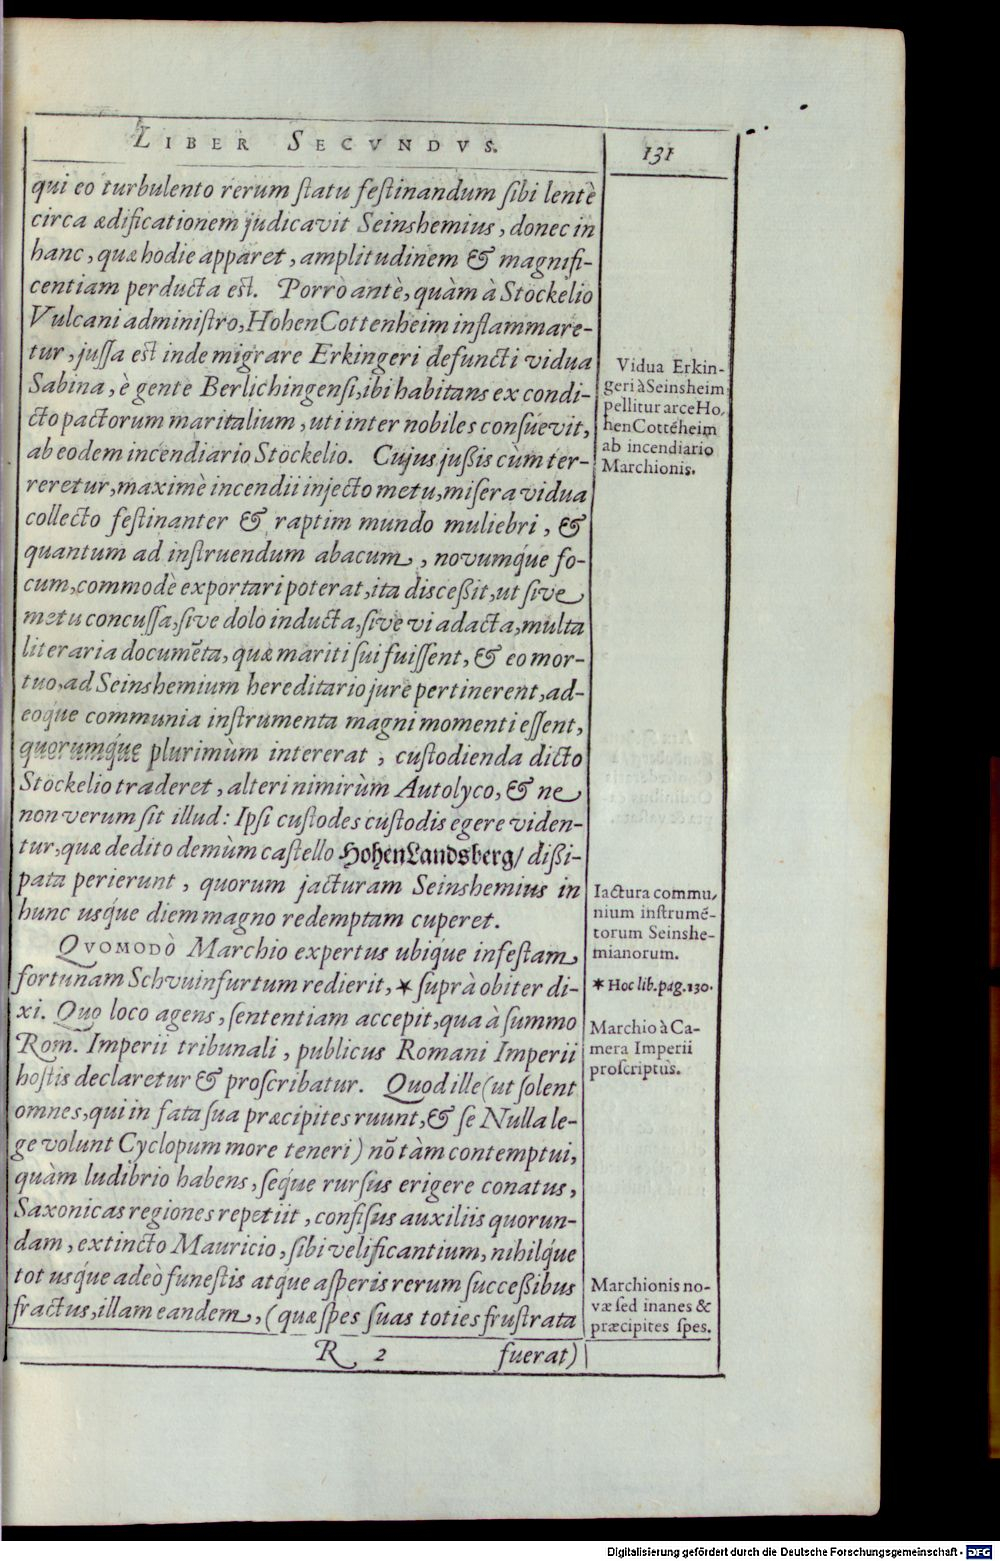 LIBER SECVNDVS.
131
qui eo turbulento rerum ſtatu feſtinandum ſibi lentè
circa ædificationem judicavit Seinshemius, donec in
hanc, quæ hodie apparet, amplitudinem & magnifi-
centiam perducta eſt. Porrò antè, quàm à Stöckelio
Vulcani adminiſtro, HohenCottenheim inflammare-
tur, juſſa eſt inde migrare Erkingeri defuncti vidua
Sabina, è gente Berlichingenſi, ibi habitans ex condi-
cto pactorum maritalium, uti inter nobiles conſuevit,
ab eodem incendiario Stöckelio. Cujus juſsis cùm ter-
reretur, maximè incendii injecto metu, miſera vidua
collecto feſtinanter & raptim mundo muliebri, &
quantum ad inſtruendum abacum, novumq́ue fo-
cum, commodè exportari poterat, ita diſceßit, ut ſive
metu concuſſa, ſive dolo inducta, ſive vi adacta, multa
literaria documẽta, quæ mariti ſui fuiſſent, & eo mor-
tuo, ad Seinshemium hereditario jure pertinerent, ad-
eoq́ue communia inſtrumenta magni momenti eſſent,
quorumq́ue plurimùm intererat, cuſtodienda dicto
Stöckelio traderet, alteri nimirùm Autolyco, & ne
non verum ſit illud: Ipſi cuſtodes cuſtodis egere viden-
tur, quæ dedito demùm caſtello HohenLandsberg/ dißi-
pata perierunt, quorum jacturam Seinshemius in
hunc usq́ue diem magno redemptam cuperet.
QVOMODÒ Marchio expertus ubiq́ue infeſtam
fortunam Schvuinfurtum redierit, * ſuprà obiter di-
xi. Quo loco agens, ſententiam accepit, qua à ſummo
Rom. Imperii tribunali, publicus Romani Imperii
hoſtis declaretur & proſcribatur. Quod ille (ut ſolent
omnes, qui in fata ſua præcipites ruunt, & ſe Nulla le-
ge volunt Cyclopum more teneri) nõ tàm contemptui,
quàm ludibrio habens, ſeq́ue rurſus erigere conatus,
Saxonicas regiones repetiit, confiſus auxiliis quorun-
dam, extincto Mauricio, ſibi velificantium, nihilq́ue
tot usq́ue adeò funeſtis atq́ue aſperis rerum ſucceßibus
fractus, illam eandem, (quæ ſpès ſuas toties fruſtrata
R 2
fuerat)
Vidua Erkin-
geri à Seinsheim
pellitur arce Ho-
henCottẽheim
ab incendiario
Marchionis.
Iactura commu-
nium inſtrumẽ-
torum Seinshe-
mianorum.
* Hoc lib. pag. 130.
Marchio à Ca-
mera Imperii
proſcriptus.
Marchionis no-
væ ſed inanes &
præcipites ſpes.
Digitalisierung gefördert durch die Deutsche Forschungsgemeinschaft - DFG